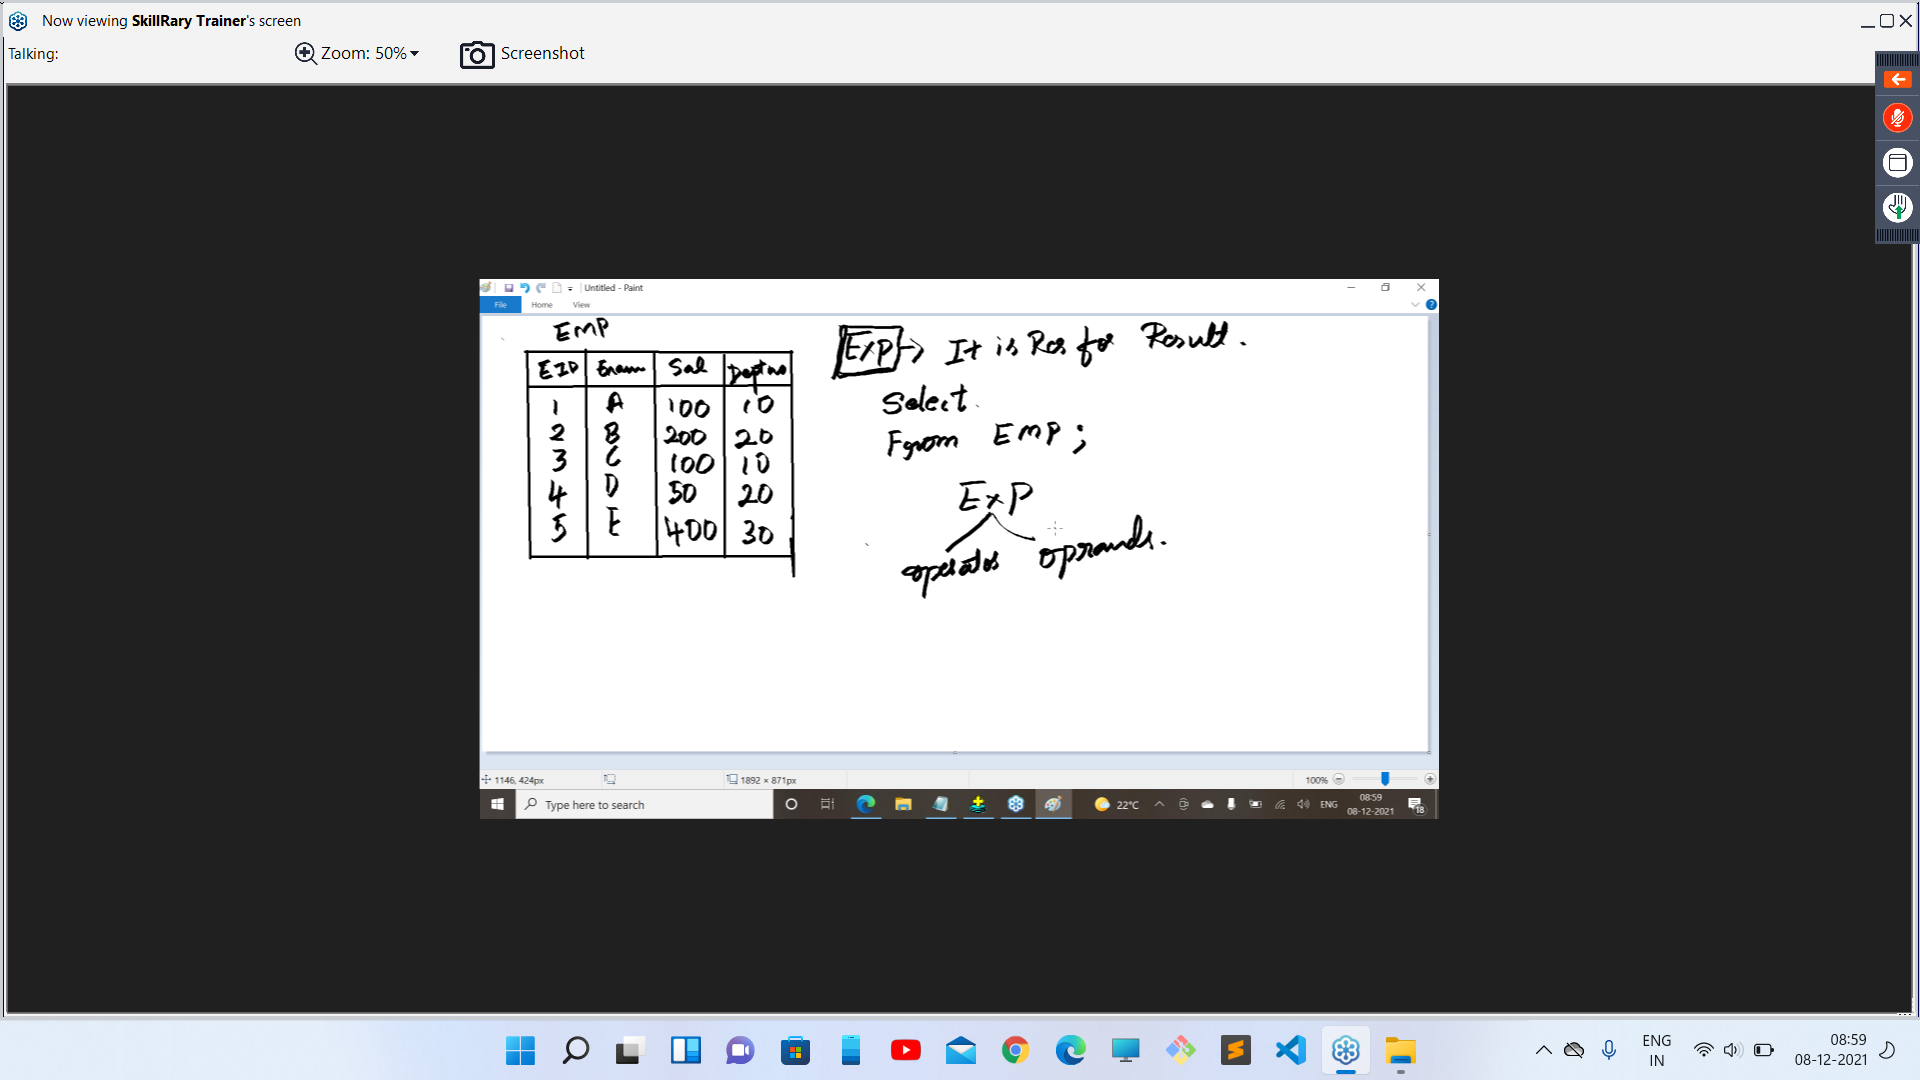 Now viewing SkillRary Trainer's screen
Talking:
Zoom: 50%
Screenshot
Untitled - Paint
File Home View
EMP
EID Enam Sal Deptno
1 A 100 10
2 B 200 20
3 C 100 10
4 D 50 20
5 E 400 30
EXP → It is Res for Result.
Select
From EMP ;
EXP
operator oprands.
1146, 424px
1892 × 871px
100%
Type here to search
22°C
ENG
08:59
08-12-2021
18
ENG
IN
08:59
08-12-2021